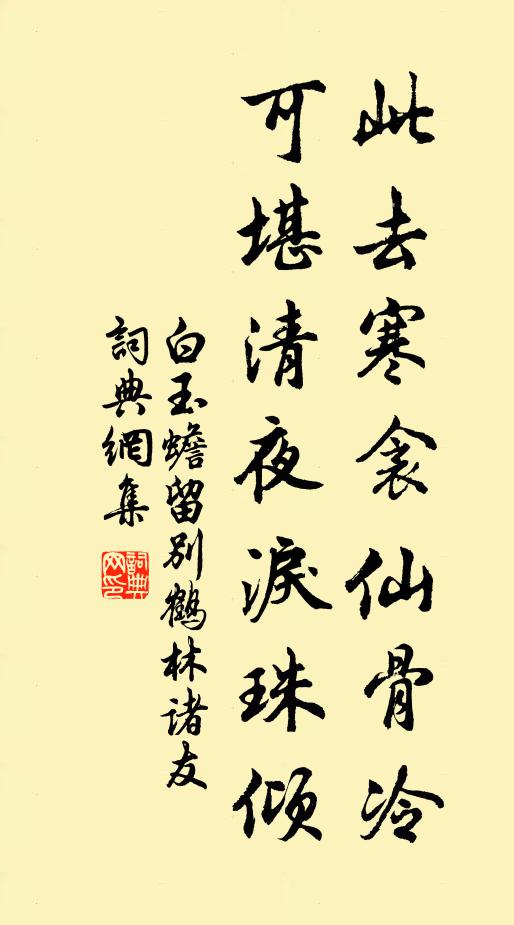 此去寒衾仙骨冷
可堪清夜淚珠傾
白玉蟾留別鶴林諸友
詞典網集
詞典網印